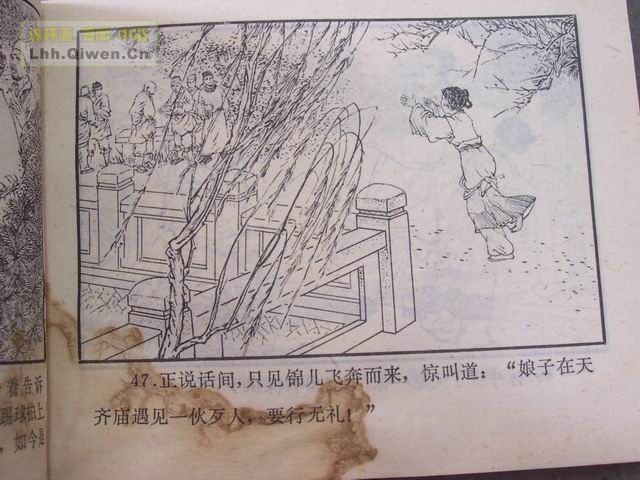 Lhh.Qiwen.Cn
着告诉
踢球扒上
，如今是
47.正说话间，只见锦儿飞奔而来，惊叫道：“娘子在天
齐庙遇见一伙歹人，要行无礼！”